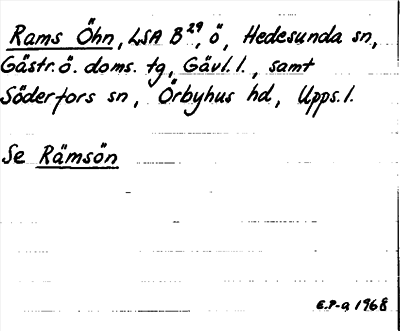 Rams Öhn, LSA B²⁹, ö, Hedesunda sn,
Gästr. ö. doms. tg, Gävl. l., samt
Söderfors sn, Örbyhus hd, Upps. l.
Se Rämsön
E.P-a, 1968